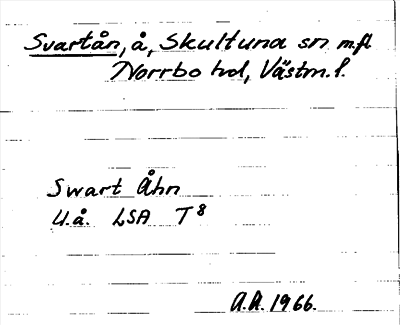 Svartån, å, Skultuna sn m.fl
Norrbo hd, Västm. l.
Swart Åhn
U.å. LSA T8
A.A. 1966.